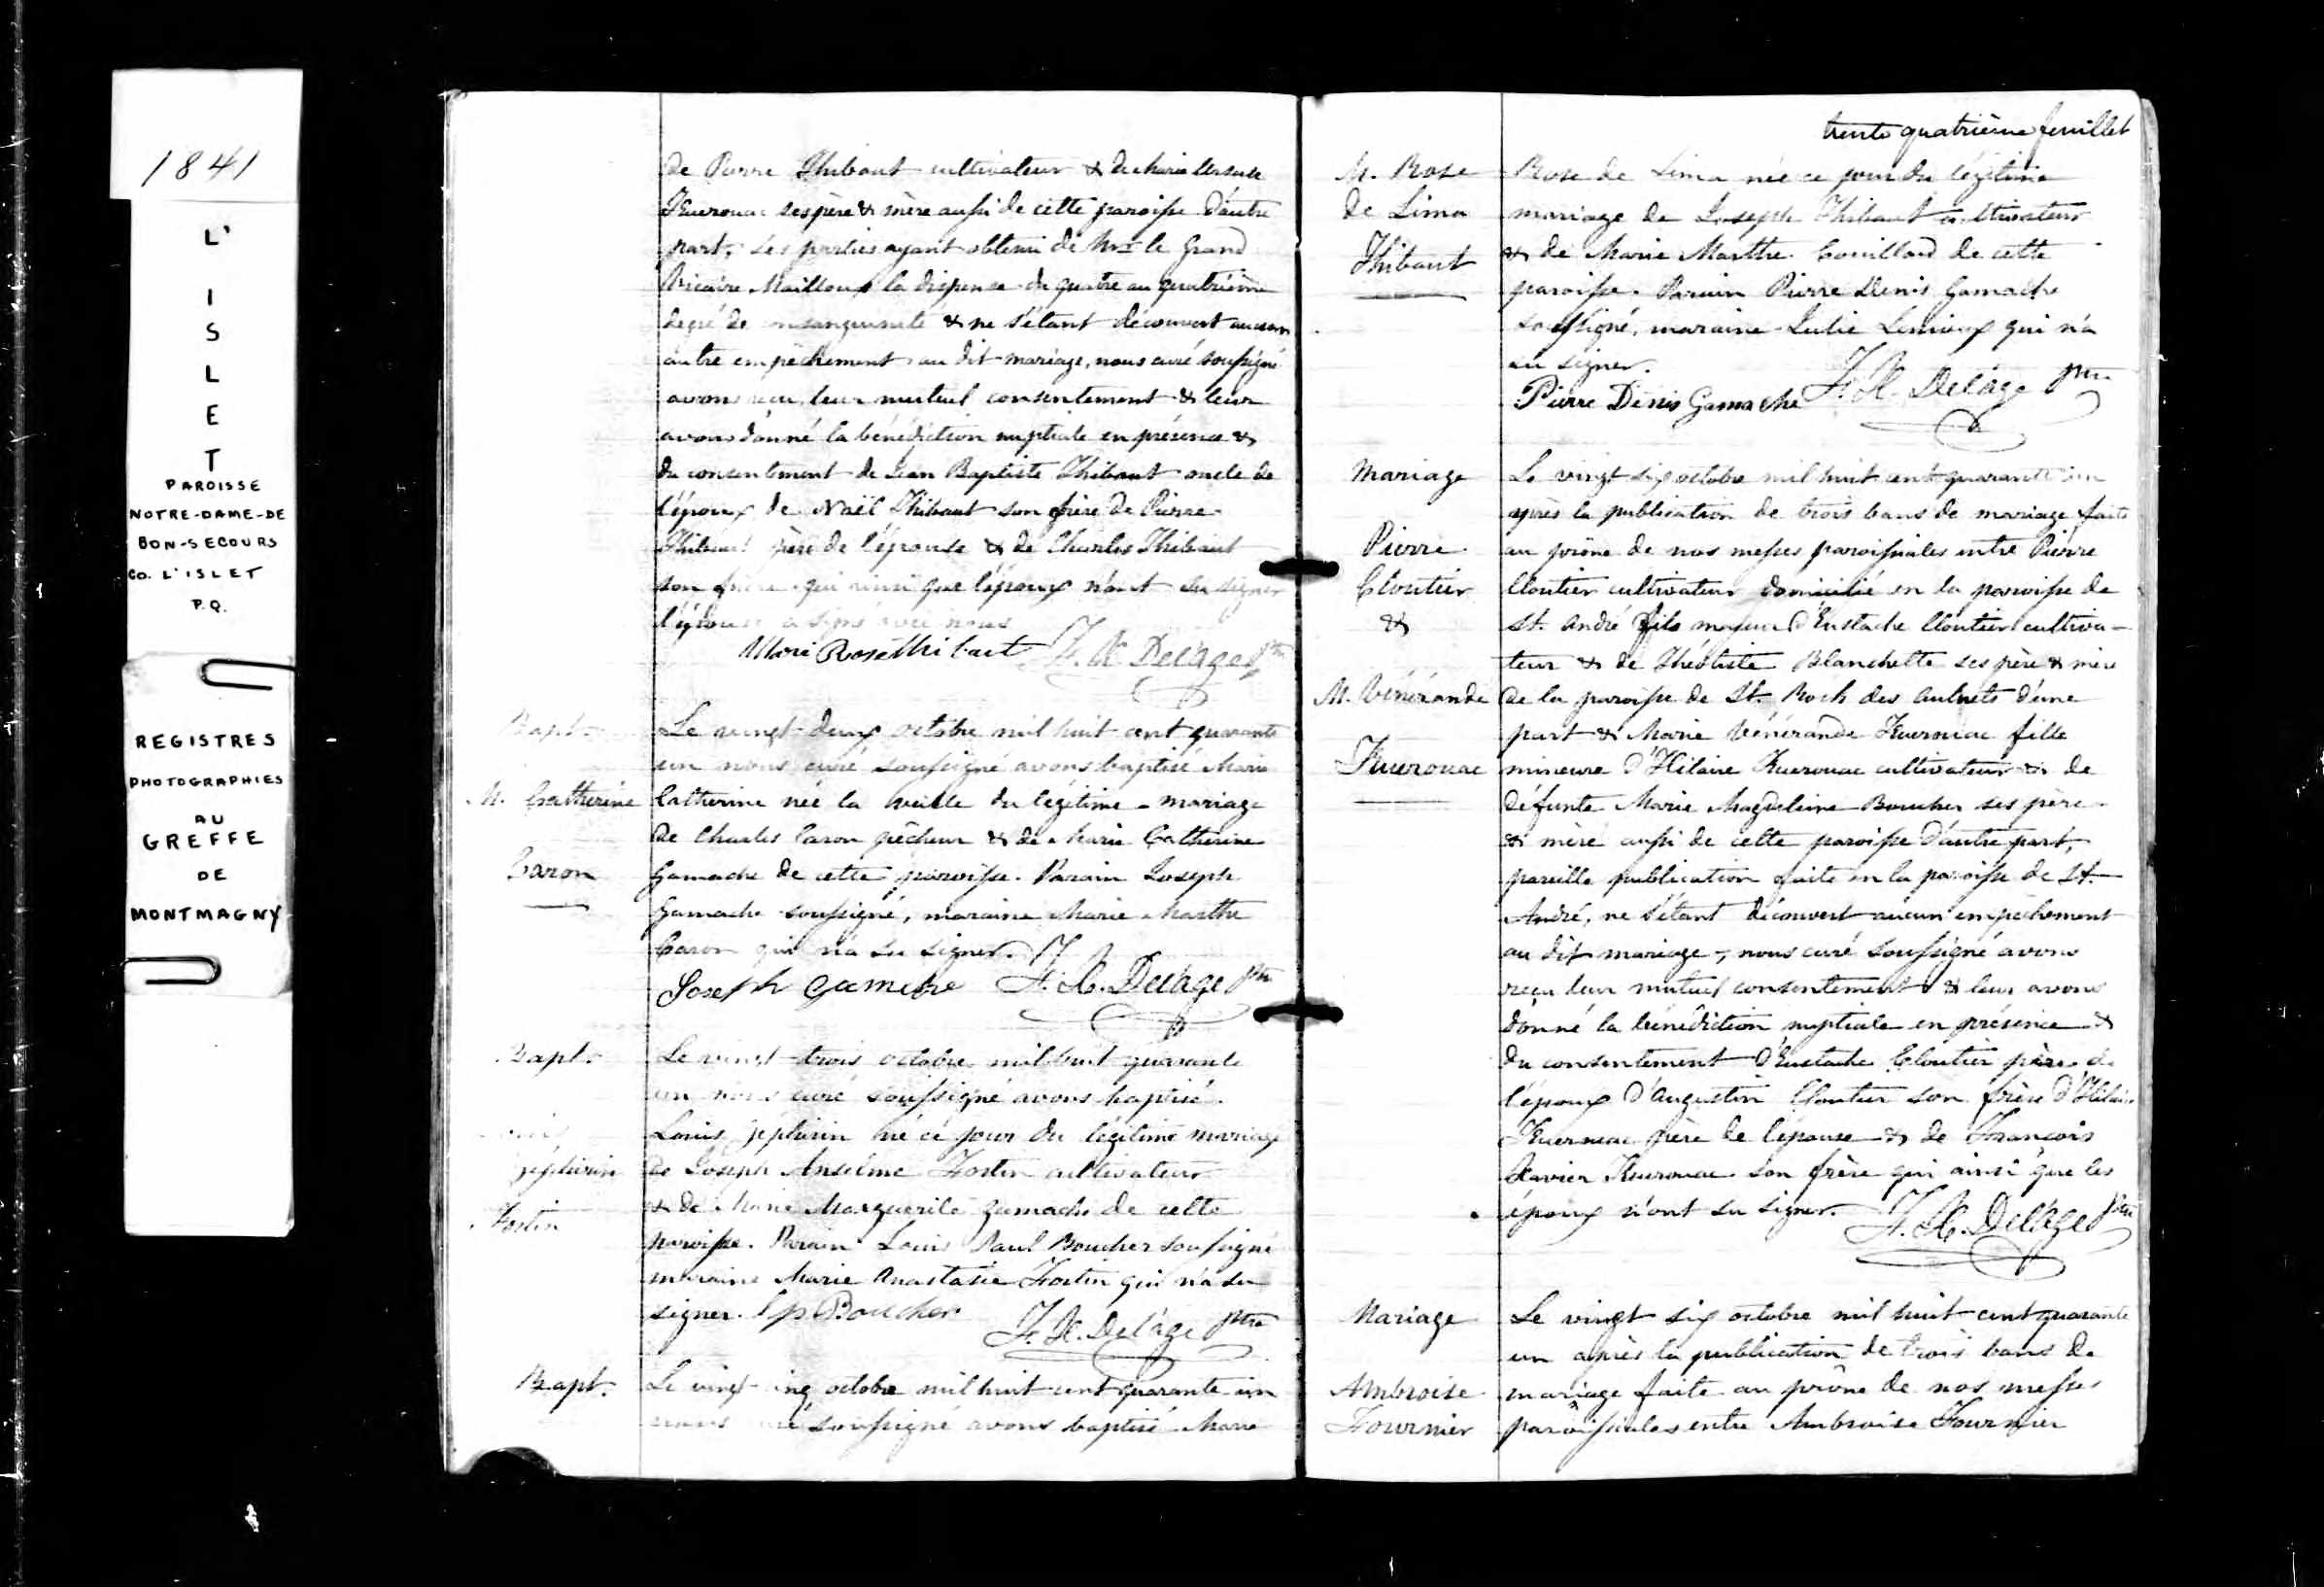 1841
L'
I
S
L
E
T
PAROISSE
NOTRE-DAME-DE
BON-SECOURS
CO. L'ISLET
P.Q.
REGISTRES
PHOTOGRAPHIES
AU
GREFFE
DE
MONTMAGNY
de Pierre Thibaut cultivateur & de Marie Ursule
Kuerouac ses père & mère aussi de cette paroisse d'autre
part; les parties ayant obtenu de Mr. le Grand
Vicaire Mailloux la dispense du quatre au quatrième
degré de consanguinité & ne s'étant découvert aucun
autre empêchement au dit mariage, nous curé soussigné
avons reçu leur mutuel consentement & leur
avons donné la bénédiction nuptiale en présence &
du consentement de Jean Baptiste Thibaut oncle de
l'époux de Naël Thibaut son frère de Pierre
Thibaut père de l'épouse & de Charles Thibaut
son frère qui ainsi que l'époux n'ont su signer
l'épouse a signé avec nous
Marie Rose Thibaut F. X. Delâge Ptre
Bapt.
M. Catherine
Caron
Le vingt-deux octobre mil huit cent quarante
un nous curé soussigné avons baptisé Marie
Catherine née la veille du légitime mariage
de Charles Caron pêcheur & de Marie Catherine
Gamache de cette paroisse. Parain Joseph
Gamache soussigné, maraine Marie Marthe
Caron qui n'a su signer.
Joseph Gamache F. X. Delâge Ptre
Bapt.
Zéphirin
Fortin
Le vingt-trois octobre mil huit quarante
un nous curé soussigné avons baptisé
Louis Zéphirin né ce jour du légitime mariage
de Joseph Anselme Fortin cultivateur
& de Marie Marguerite Gamache de cette
paroisse. Parain Louis Paul Boucher soussigné
maraine Marie Anastasie Fortin qui n'a su
signer. Lp Boucher F. X. Delâge Ptre
Bapt.
Le vingt cinq octobre mil huit cent quarante un
nous curé soussigné avons baptisé Marie
trente quatrième feuillet
M. Rose
de Lima
Thibaut
Rose de Lima née ce jour du légitime
mariage de Joseph Thibaut cultivateur
& de Marie Marthe Couillard de cette
paroisse. Parain Pierre Denis Gamache
soussigné, maraine Julie Lemieux qui n'a
su signer.
Pierre Denis Gamache F. X. Delâge Ptre
Mariage
Pierre
Cloutier
&
M. Vénérande
Kuerouac
Le vingt six octobre mil huit cent quarante un
après la publication de trois bans de mariage faite
au prône de nos messes paroissiales entre Pierre
Cloutier cultivateur domicilié en la paroisse de
St. André fils majeur d'Eustache Cloutier cultiva-
teur & de Théotiste Blanchette ses père & mère
de la paroisse de St. Roch des Aulnets d'une
part & Marie Vénérande Kuerouac fille
mineure d'Hilaire Kuerouac cultivateur & de
défunte Marie Magdeleine Boucher ses père
& mère aussi de cette paroisse d'autre part,
pareille publication faite en la paroisse de St.
André, ne s'étant découvert aucun empêchement
au dit mariage, nous curé soussigné avons
reçu leur mutuel consentement & leur avons
donné la bénédiction nuptiale en présence &
du consentement d'Eustache Cloutier père de
l'époux d'Augustin Cloutier son frère d'Hilaire
Kuerouac père de l'épouse & de François
Xavier Kuerouac son frère qui ainsi que les
époux n'ont su signer. F. X. Delâge Ptre
Mariage
Ambroise
Fournier
Le vingt six octobre mil huit cent quarante
un après la publication de trois bans de
mariage faite au prône de nos messes
paroissiales entre Ambroise Fournier